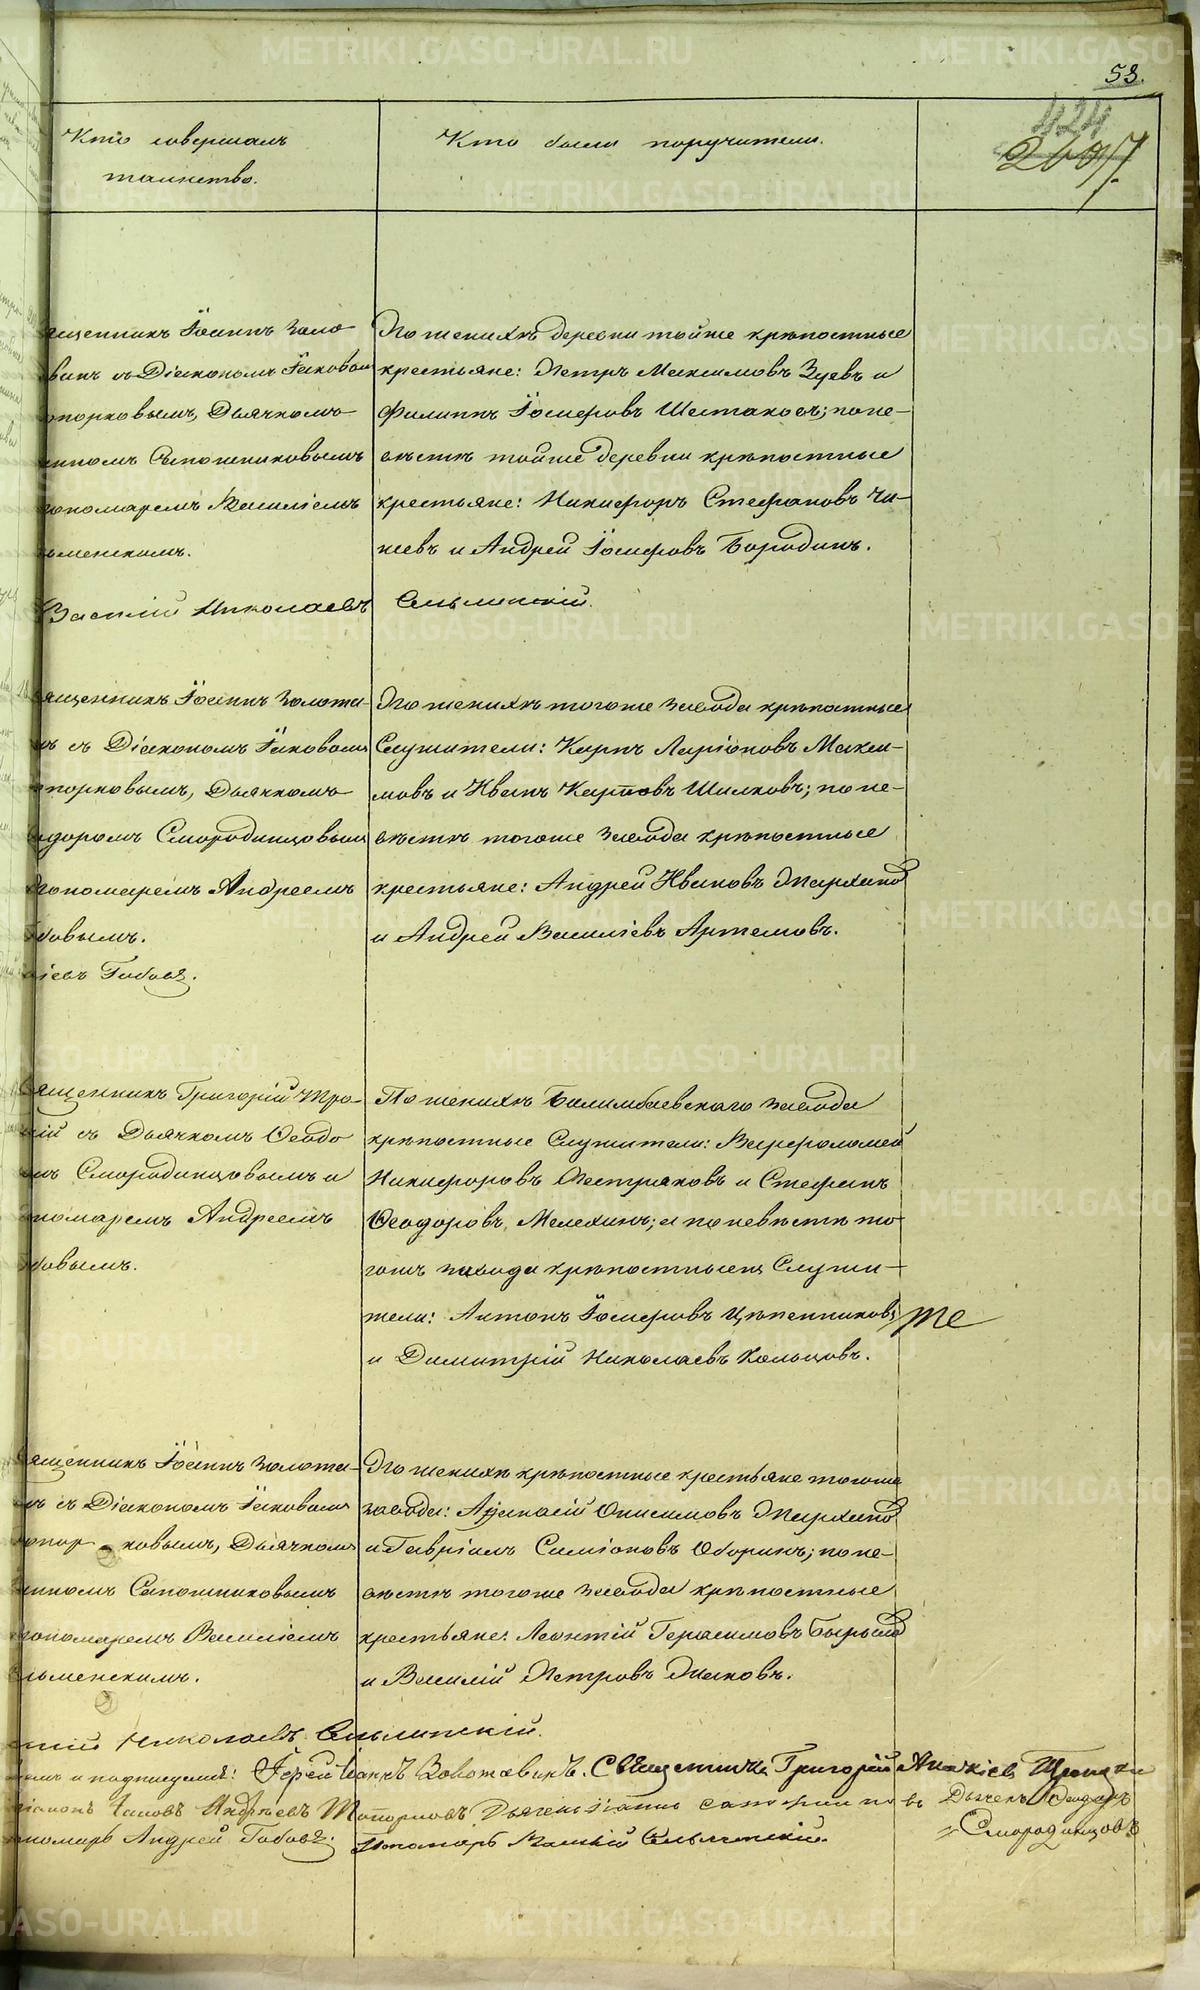 53.
424
Кто совершалъ
таинство.
Кто были поручители.
ященникъ Іоаннъ Золо
винъ съ Діакономъ Іаковом
опорковымъ, Дьячкомъ
нномъ Сапожниковымъ
ономаремъ Василіемъ
ьменскимъ.
Василій Николаевъ Сельменскій.
По женихѣ деревни тойже крѣпостные
крестьяне: Петръ Максимовъ Зуевъ и
Филиппъ Іосифовъ Шестаковъ; по не-
вѣстѣ тойже деревни крѣпостные
крестьяне: Никифоръ Стефановъ Чи-
жевъ и Андрей Іосифовъ Бородинъ.
ященникъ Іоаннъ Золота-
ъ съ Діакономъ Іаковомъ
опорковымъ, Дьячкомъ
доромъ Смородинцовымъ
ономаремъ Андреемъ
бовымъ.
іевъ Бабовъ.
По женихѣ тогоже завода крѣпостные
Служители: Карпъ Ларіоновъ Макси-
мовъ и Иванъ Карповъ Шилковъ; по не-
вѣстѣ тогоже завода крѣпостные
крестьяне: Андрей Ивановъ
и Андрей Василіевъ Артемовъ.
ященникъ Григорій Тро-
кій съ Дьячкомъ Ѳеодо
мъ Смородинцовымъ и
номаремъ Андреемъ
бовымъ.
По женихѣ Билимбаевскаго завода
крѣпостные Служители: Варфоломей
Никифоровъ Пестряковъ и Стефанъ
Ѳеодоровъ Мелехинъ; а по невѣстѣ то
гожъ завода крѣпостные Служи-
тели: Антонъ Іосифовъ Цѣпенниковъ
же
и Димитрій Николаевъ Кольцовъ.
ященникъ Іоаннъ Золота-
ъ съ Діакономъ Іаковомъ
опорковымъ, Дьячкомъ
нномъ Сапожниковымъ
ономаремъ Василіемъ
льменскимъ.
По женихѣ крѣпостные крестьяне тогоже
завода: Аѳанасій Онисимовъ
и Гавріилъ Симіоновъ Оборинъ; по не-
вѣстѣ тогоже завода крѣпостные
крестьяне: Леонтій Герасимовъ
и Василій Петровъ Пановъ.
Николаевъ Сельменскій.
и подписуемъ: Іерей Іоаннъ Золотавинъ. Священникъ Григорій Троицкій
Іаковъ Андреевъ Топорковъ Дьячекъ Сапожниковъ Дьячекъ Ѳеодоръ
Смородинцовъ
номарь Андрей Бабовъ. Пономарь Василій Сельменскій.
METRIKI.GASO-URAL.RU